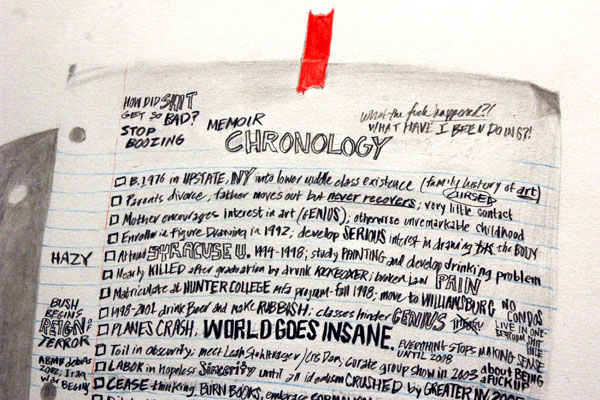 HOW DID SHIT
GET SO BAD?
STOP
BOOZING
MEMOIR
CHRONOLOGY
What the fuck happened?!
WHAT HAVE I BEEN DOING?!
B. 1976 in UPSTATE, NY into lower middle class existence (family history of art)
CURSED
Parents divorce, father moves out but never recovers; very little contact
Mother encourages interest in art (GENIUS); otherwise unremarkable childhood
Enroll in Figure Drawing in 1992; develop SERIOUS interest in drawing the BODY
Attend SYRACUSE U. 1994-1998; study PAINTING and develop drinking problem
HAZY
Nearly KILLED after graduation by drunk; broken jaw PAIN
Matriculate at HUNTER COLLEGE mfa program - Fall 1998; move to WILLIAMSBURG
NO CONDOS
LIVE IN ONE
1998-2001 drink Beer and make RUBBISH; classes hinder GENIUS
BUSH
BEGINS
REIGN OF
TERROR
PLANES CRASH. WORLD GOES INSANE.
EVERYTHING STOPS MAKING SENSE
UNTIL 2008
Toil in obscurity; meet curate group show in 2003
about BEING
A FUCKUP
2002; Iraq
War BEGINS
LABOR in Hopeless Sincerity until all idealism CRUSHED by GREATER NY 2005
CEASE thinking, BURN BOOKS, embrace